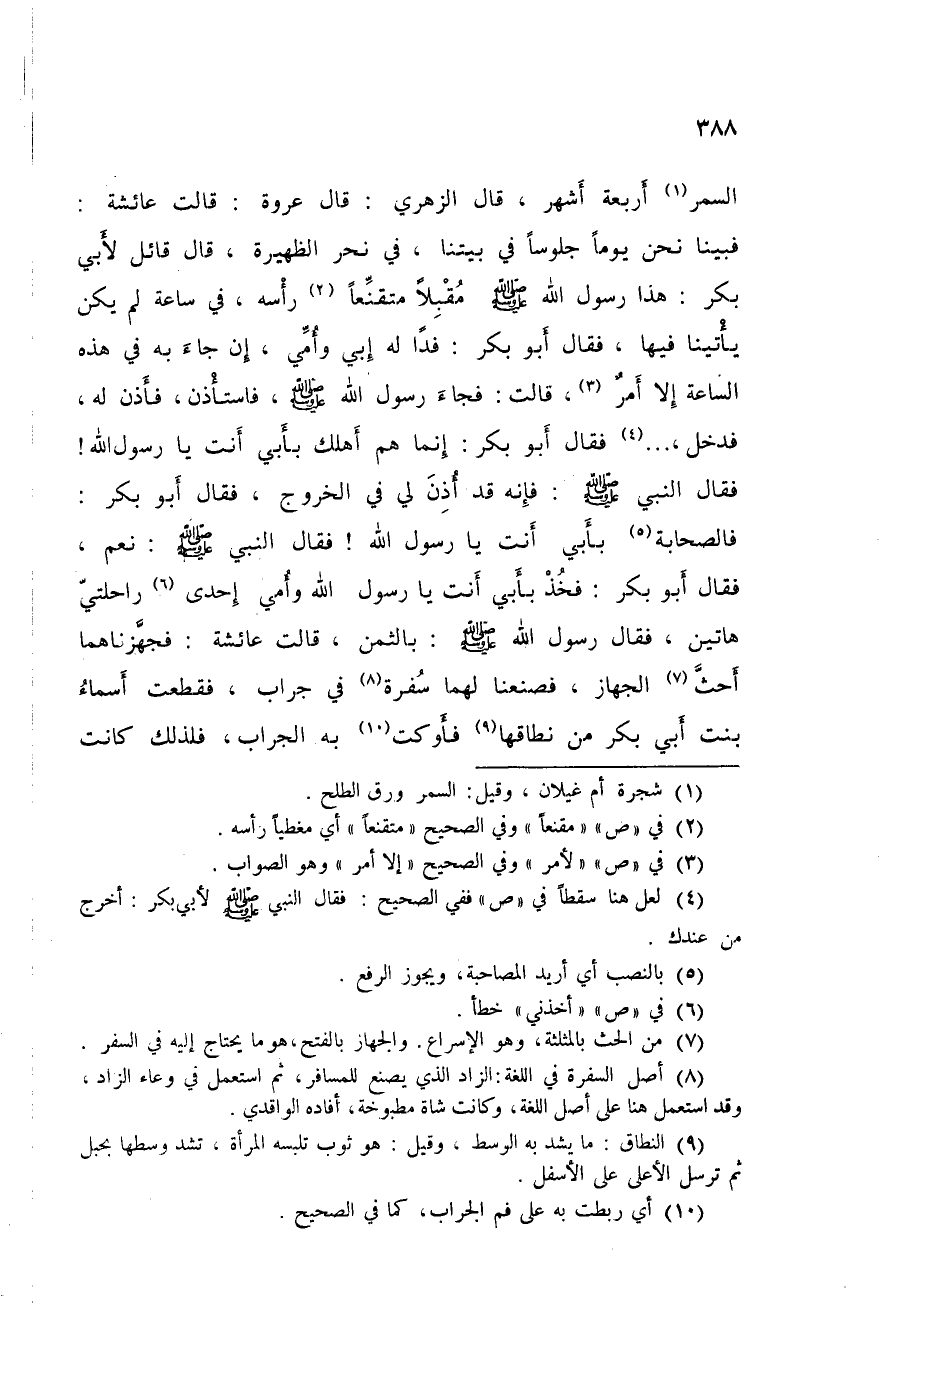 ٣٨٨
السمر(١) أَربعة أَشهر ، قال الزهري : قال عروة : قالت عائشة :
فبينا نحن يوماً جلوساً في بيتنا ، في نحر الظهيرة ، قال قائل لأَبي
بكر : هذا رسول الله ﷺ مُقْبِلاً متقنِّعاً (٢) رأْسه ، في ساعة لم يكن
يأْتينا فيها ، فقال أَبو بكر : فدًا له إِبي وأُمِّي ، إِن جاءَ به في هذه
الساعة إِلا أَمرٌ (٣) ، قالت : فجاءَ رسول الله ﷺ ، فاستأْذن ، فأَذن له ،
فدخل ،...(٤) فقال أَبو بكر : إِنما هم أَهلك بأَبي أَنت يا رسول الله !
فقال النبي ﷺ : فإِنه قد أُذِنَ لي في الخروج ، فقال أَبو بكر :
فالصحابة(٥) بأَبي أَنت يا رسول الله ! فقال النبي ﷺ : نعم ،
فقال أَبو بكر : فخُذْ بأَبي أَنت يا رسول الله وأُمي إِحدى (٦) راحلتيّ
هاتين ، فقال رسول الله ﷺ : بالثمن ، قالت عائشة : فجهَّزناهما
أَحثَّ (٧) الجهاز ، فصنعنا لهما سُفرة(٨) في جراب ، فقطعت أَسماءُ
بنت أَبي بكر من نطاقها(٩) فأَوكت(١٠) به الجراب ، فلذلك كانت
(١) شجرة أم غيلان ، وقيل : السمر ورق الطلح .
(٢) في «ص» «مقنعاً» وفي الصحيح «متقنعاً» أي مغطياً رأسه .
(٣) في «ص» «لأمر» وفي الصحيح «إلا أمر» وهو الصواب .
(٤) لعل هنا سقطاً في «ص» ففي الصحيح : فقال النبي ﷺ لأبي بكر : أخرج
من عندك .
(٥) بالنصب أي أريد المصاحبة ، ويجوز الرفع .
(٦) في «ص» «أخذني» خطأ .
(٧) من الحث بالمثلثة ، وهو الإسراع . والجهاز بالفتح ، هو ما يحتاج إليه في السفر .
(٨) أصل السفرة في اللغة : الزاد الذي يصنع للمسافر ، ثم استعمل في وعاء الزاد ،
وقد استعمل هنا على أصل اللغة ، وكانت شاة مطبوخة ، أفاده الواقدي .
(٩) النطاق : ما يشد به الوسط ، وقيل : هو ثوب تلبسه المرأة ، تشد وسطها بحبل
ثم ترسل الأعلى على الأسفل .
(١٠) أي ربطت به على فم الجراب ، كما في الصحيح .